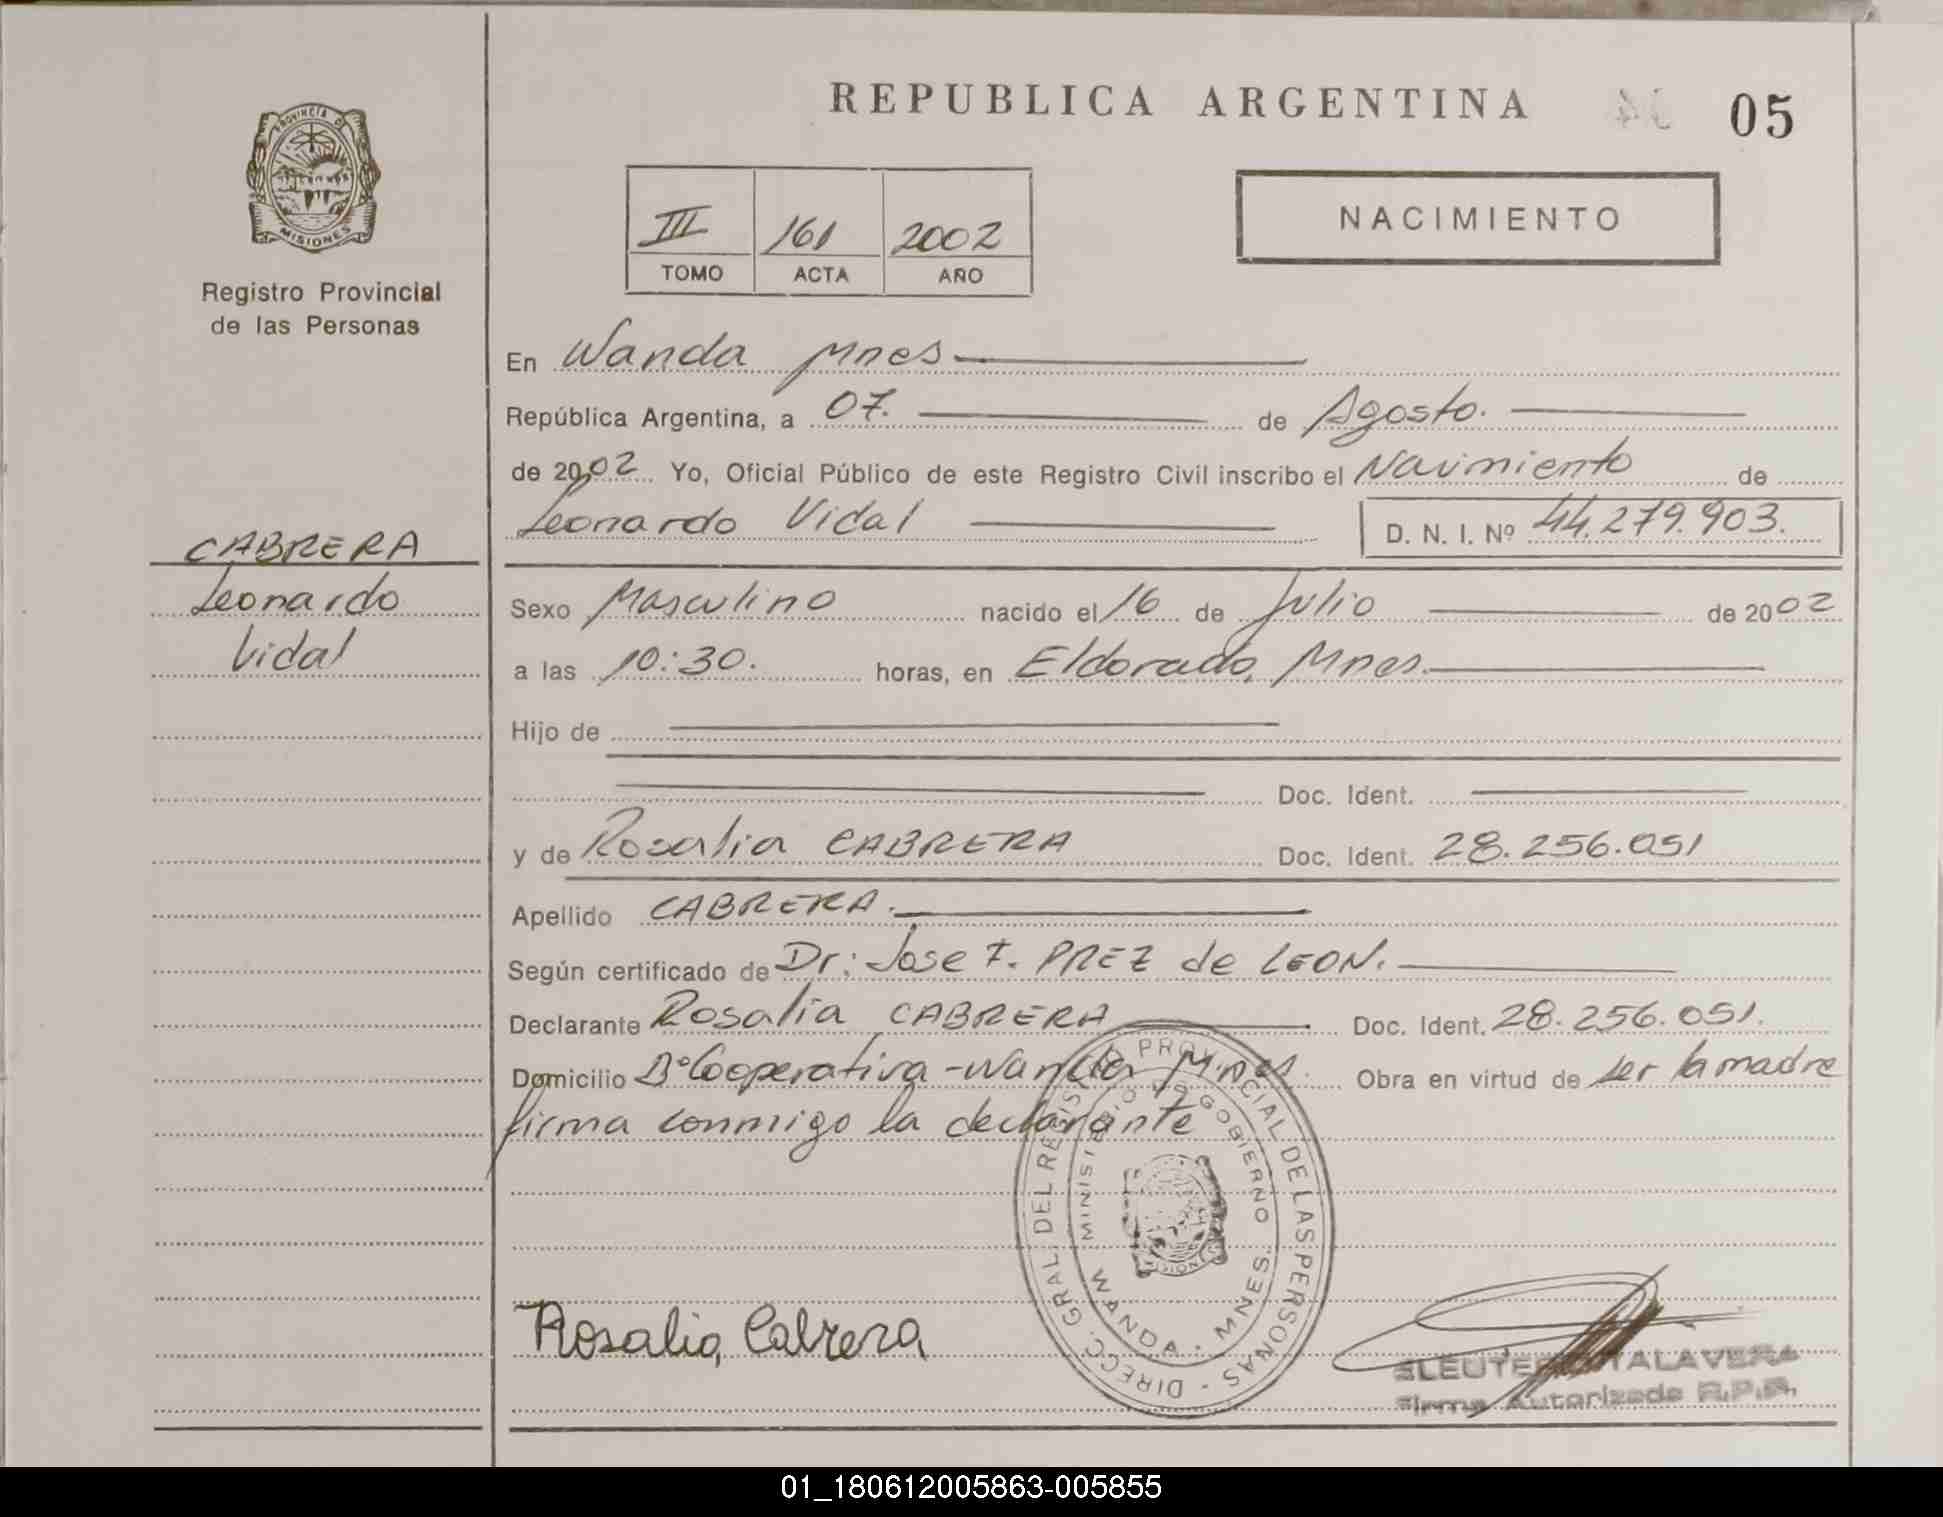 REPUBLICA ARGENTINA
05
PROVINCIA D
MISIONES
Registro Provincial
de las Personas
III 161 2002
TOMO ACTA AÑO
NACIMIENTO
En Wanda Mnes
República Argentina, a 07. de Agosto.
de 2002 Yo, Oficial Público de este Registro Civil inscribo el Nacimiento de
Leonardo Vidal D. N. I. Nº 44.279.903.
CABRERA
Leonardo
Vidal
Sexo Masculino nacido el 16 de Julio de 2002
a las 10:30. horas, en Eldorado, Mnes.
Hijo de
Doc. Ident.
y de Rosalia CABRERA Doc. Ident. 28.256.051
Apellido CABRERA.
Según certificado de Dr: Jose F. PREZ de LEON.
Declarante Rosalia CABRERA Doc. Ident. 28.256.051.
Domicilio Bº Cooperativa - Wanda Mnes. Obra en virtud de ser la madre
firma conmigo la declarante
DIRECC. GRAL. DEL REGISTRO PROVINCIAL DE LAS PERSONAS -
MINISTERIO DE GOBIERNO
WANDA - MNES.
Rosalia Cabrera
TALAVERA
Firma Autorizada R.P.P.
01_180612005863-005855